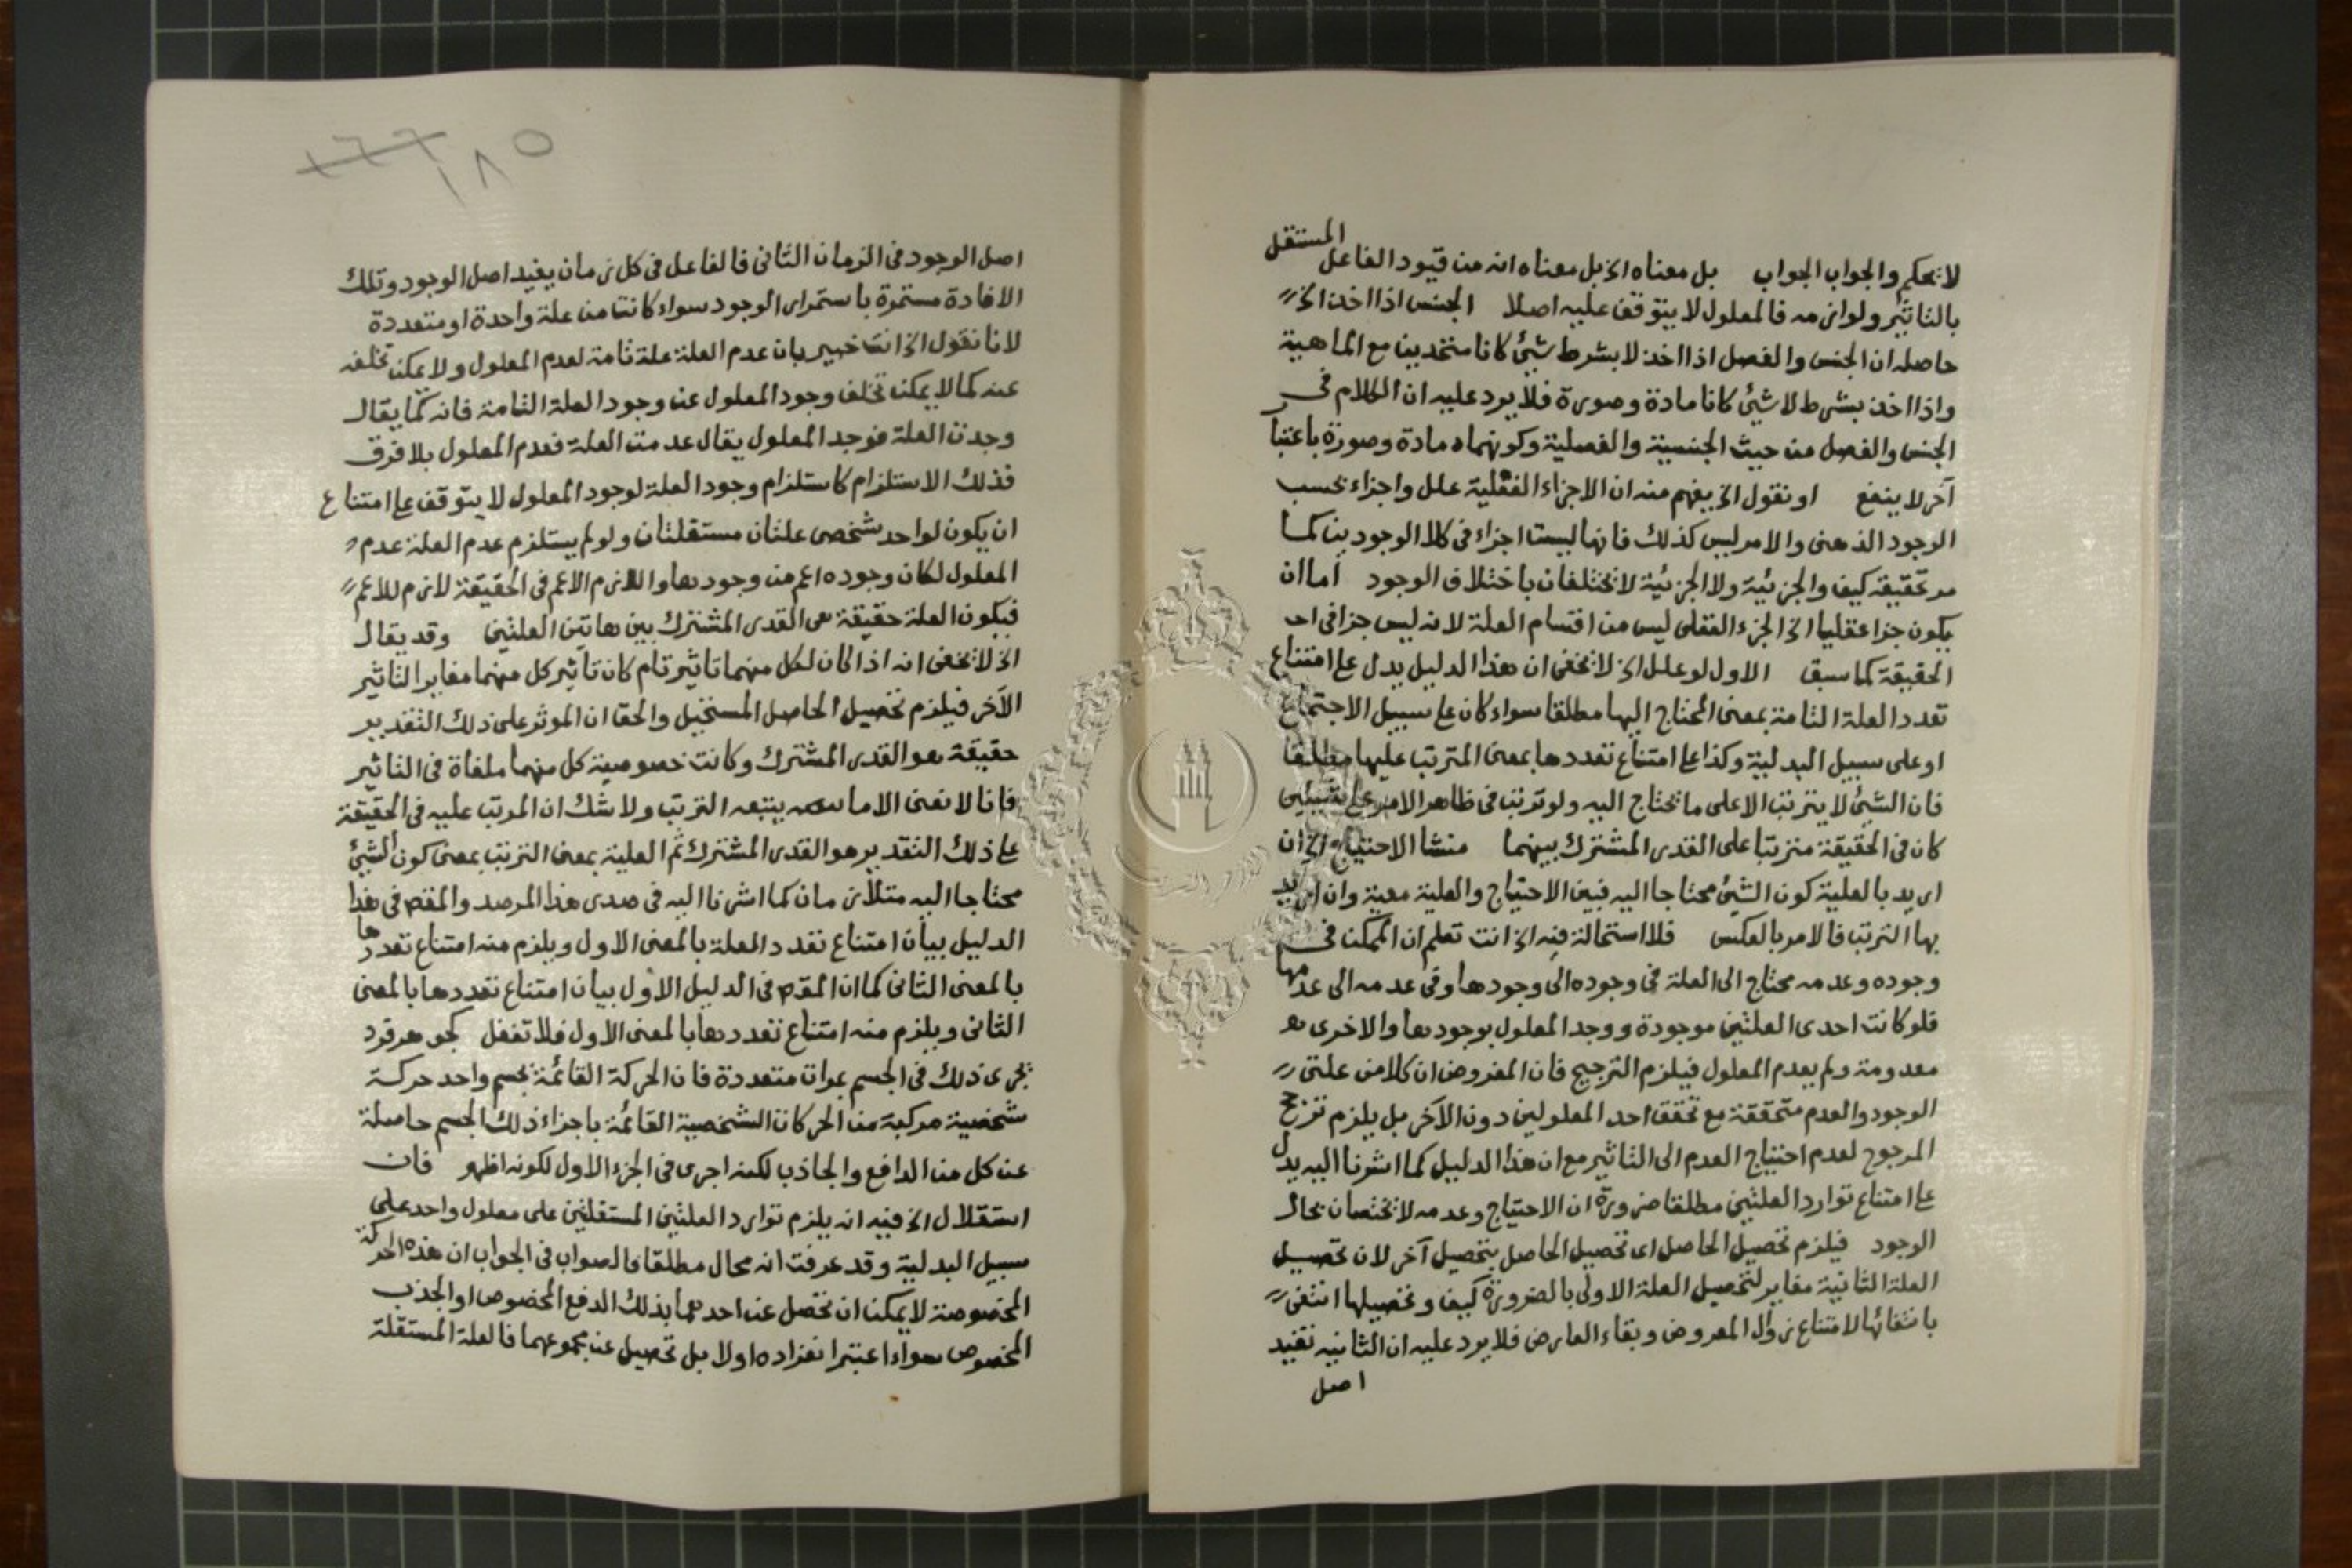 المستقل
لا تحكم والجواب الجواب بل معناه الخ بل معناه انه من قيود الفاعل
بالتاثير ولوازمه فالمعلول لا يتوقف عليه اصلا الجنس اذا اخذ الخ
حاصله ان الجنس والفصل اذا اخذ لا بشرط شيئ كانا متحدين مع الماهية
واذا اخذ بشرط لا شيئ كانا مادة وصورة فلا يرد عليه ان الكلام في
الجنس والفصل من حيث الجنسية والفصلية وكونهما مادة وصورة باعتبا
آخر لا ينفع او نقول الخ يفهم منه ان الاجزاء العقلية علل واجزاء بحسب
الوجود الذهنى والامر ليس كذلك فانها ليست اجزاء فى كلا الوجودين كما
مر تحقيقه كيف والجزئية ولا الجزئية لا تختلفان باختلاف الوجود اما ان
يكون جزا عقليا الخ الجزء العقلى ليس من اقسام العلة لانه ليس جزا فى
الحقيقة كما سبق الاول لو علل الخ لا تخفى ان هذا الدليل يدل على امتناع
تعدد العلة التامة بمعنى المحتاج اليها مطلقا سواء كان على سبيل الاجتماع
او على سبيل البدلية وكذا على امتناع تعددها بمعنى المترتب عليها مطلقا
فان الشيئ لا يترتب الا على ما يحتاج اليه ولو ترتب فى ظاهر الامر على شيئين
كان فى الحقيقة مترتبا على القدر المشترك بينهما منشا الاحتياج الخ ان
اريد بالعلية كون الشيئ محتاجا اليه فبين الاحتياج والعلية معية وان اريد
بها الترتب فالامر بالعكس فلا استحالة فيه الخ انت تعلم ان الممكن فى
وجوده وعدمه محتاج الى العلة فى وجوده الى وجودها وفى عدمه الى عدمها
فلو كانت احدى العلتين موجودة ووجد المعلول بوجودها والاخرى
معدومة ولم يعدم المعلول فيلزم الترجيح فان المفروض ان كلا من علتى
الوجود والعدم متحققة مع تحقق احد المعلولين دون الآخر بل يلزم ترجح
المرجوح لعدم احتياج العدم الى التاثير مع ان هذا الدليل كما اشرنا اليه يدل
على امتناع توارد العلتين مطلقا ضرورة ان الاحتياج وعدمه لا تختصان بحال
الوجود فيلزم تحصيل الحاصل اى تحصيل الحاصل بتحصيل آخر لان تحصيل
العلة الثانية مغاير لتحصيل العلة الاولى بالضرورة كيف وتحصيلها انتفى
بانتفائها لامتناع زوال المعروض وبقاء العارض فلا يرد عليه ان الثانيه تفيد
اصل
١٦٦
١٨٥
اصل الوجود فى الزمان الثانى فالفاعل فى كل زمان يفيد اصل الوجود وتلك
الافادة مستمرة باستمرار الوجود سواء كانت من علة واحدة او متعددة
لانا نقول الخ انت خبير بان عدم العلة علة تامة لعدم المعلول ولا يمكن تخلفه
عنه كما لا يمكن تخلف وجود المعلول عن وجود العلة التامة فانه كما يقال
وجدت العلة فوجد المعلول يقال عدمت العلة فعدم المعلول بلا فرق
فذلك الاستلزام كاستلزام وجود العلة لوجود المعلول لا يتوقف على امتناع
ان يكون لواحد شخصى علتان مستقلتان ولو لم يستلزم عدم العلة عدم
المعلول لكان وجوده اعم من وجودها واللازم الاعم فى الحقيقة لازم للاعم
فيكون العلة حقيقة هى القدر المشترك بين هاتين العلتين وقد يقال
الخ لا تخفى انه اذا كان لكل منهما تاثير تام كان تاثير كل منهما مغايرا لتاثير
الآخر فيلزم تحصيل الحاصل المستحيل والحق ان الموثر على ذلك التقدير
حقيقة هو القدر المشترك وكانت خصوصية كل منهما ملغاة فى التاثير
فانا لا نعنى الا ما يتبعه الترتب ولا شك ان المرتب عليه فى الحقيقة
على ذلك التقدير هو القدر المشترك ثم العلية بمعنى الترتب بمعنى كون الشيئ
محتاجا اليه متلازمان كما اشرنا اليه فى صدر هذا المرصد والمقص فى هذا
الدليل بيان امتناع تعدد العلة بالمعنى الاول ويلزم منه امتناع تعددها
بالمعنى الثانى كما ان المقص فى الدليل الاول بيان امتناع تعددها بالمعنى
الثانى ويلزم منه امتناع تعددها بالمعنى الاول فلا تغفل كجوهر فرد
تجرى ذلك فى الجسم بمرات متعددة فان الحركة القائمة بجسم واحد حركة
شخصية مركبة من الحركات الشخصية القائمة باجزاء ذلك الجسم حاصلة
عن كل من الدافع والجاذب لكنه اجرى فى الجزء الاول لكونه اظهر فان
استقلال الخ فيه انه يلزم توارد العلتين المستقلتين على معلول واحد على
سبيل البدلية وقد عرفت انه محال مطلقا فالصواب فى الجواب ان هذه الحركة
المخصوصة لا يمكن ان تحصل عن احدهما بذلك الدفع المخصوص او الجذب
المخصوص سواء اعتبر انفراده اولا بل تحصيل عن مجموعهما فالعلة المستقلة